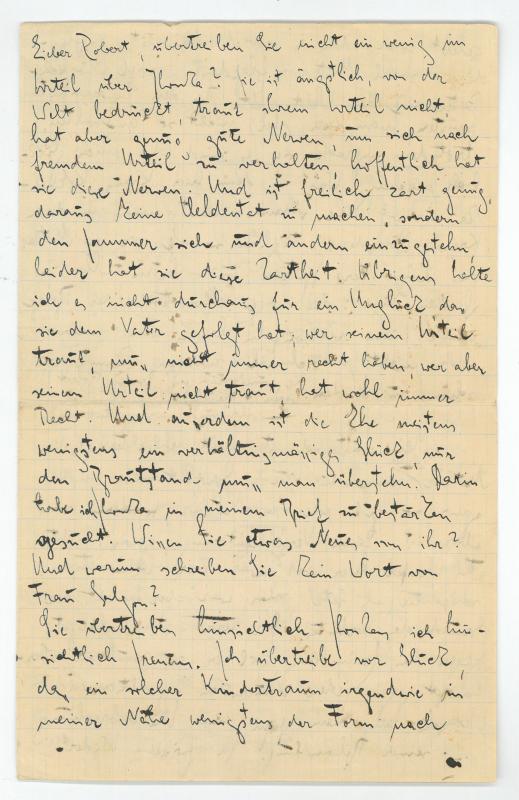 Lieber Robert, übertreiben Sie nicht ein wenig im
Urteil über Ilonka? Sie ist ängstlich, von der
Welt bedrückt, traut ihrem Urteil nicht
hat aber genug gute Nerven, um sich nach
fremdem Urteil zu verhalten, hoffentlich hat
sie diese Nerven. Und ist freilich zart genug,
daraus keine Heldentat zu machen, sondern
den Jammer sich und andern einzugestehn,
leider hat sie diese Zartheit. Übrigens halte
ich es nicht durchaus für ein Unglück das
sie dem Vater gefolgt hat; wer seinem Urteil
traut, muss nicht immer recht haben, wer aber
seinem Urteil nicht traut, hat wohl immer
Recht. Und ausserdem ist die Ehe meistens
wenigstens ein verhältnismässiges Glück, nur
den Brautstand muss man überstehn. Darin
habe ich Ilonka in meinem Brief zu bestärken
gesucht. Wissen Sie etwas Neues von ihr?
Und warum schreiben Sie kein Wort von
Frau Galgon?
Sie übertreiben hinsichtlich Ilonkas, ich hin-
sichtlich Irenens. Ich übertreibe vor Glück,
dass ein solcher Kindertraum irgendwie in
meiner Nähe wenigstens der Form nach